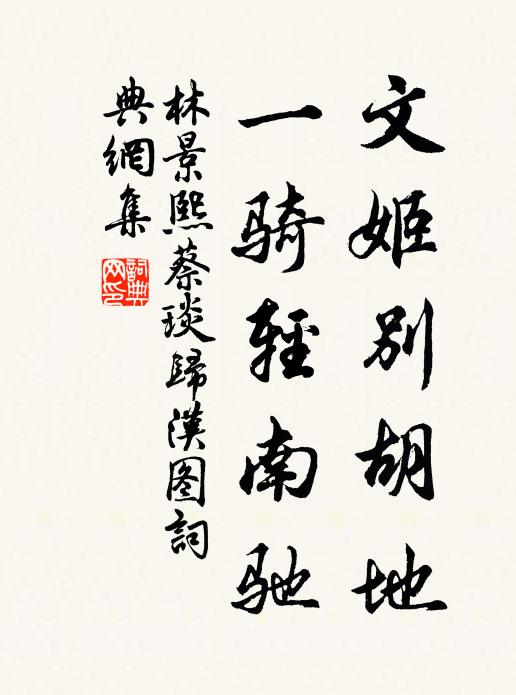 文姬别胡地
一骑輕南驰
林景熙蔡琰歸漢图詞
典網集
詞典
网印